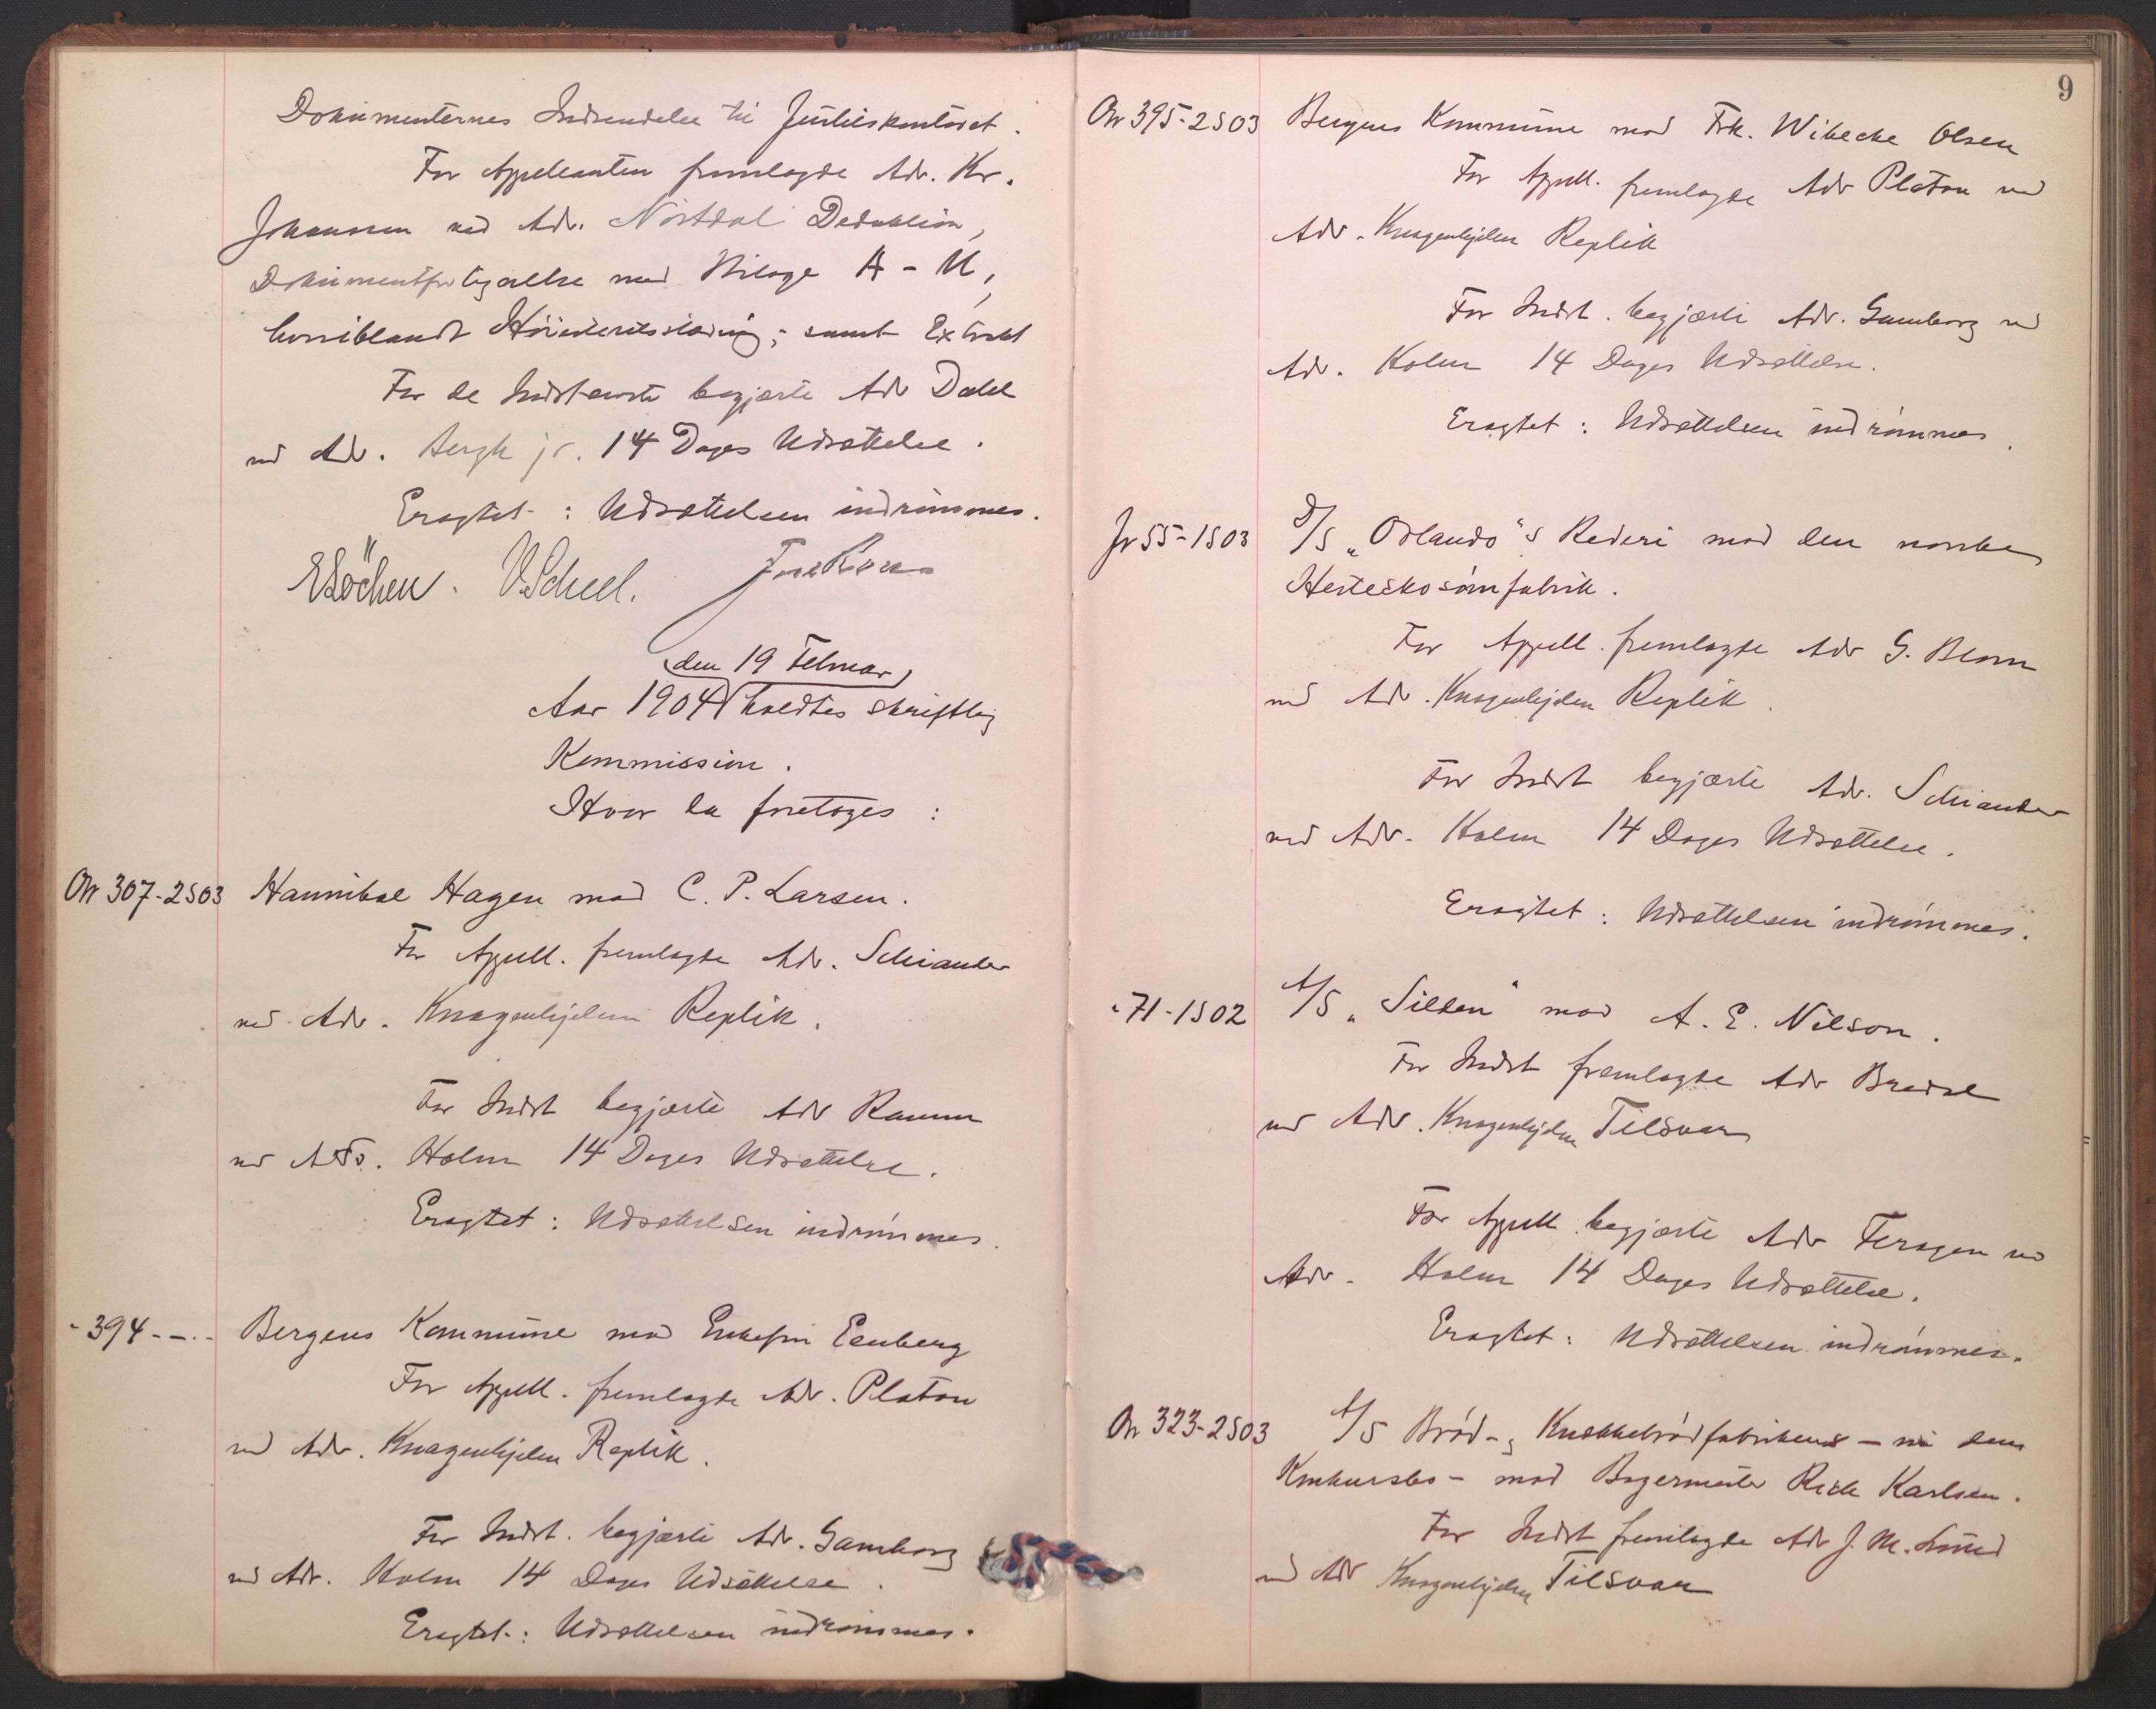 Dokumenternes Indsendelse til Justitskontoret.
For Appellanten fremlagde Adv. Kr.
Johanssen ved Adv. Nørdal Deduktion,
Dokumentfortegnelse med Bilage A - U,
hvoriblandt Høiesteretsstævning; samt Extrakt
For de Indstævnte begjærte Adv Dahl
ved Adv. Bergh jr. 14 Dages Udsættelse.
Eragtet: Udsættelsen indrømmes.
E Löchen. V. Scheel.
den 19 Februar
Aar 1904 holdtes skriftlig
Kommission.
Hvor da foretoges:
Or 307-2S03 Hannibal Hagen mod C. P. Larsen.
For Appell. fremlagde Adv. Schiander
ved Adv. Knagenhjelm Replik.
For Indst begjærte Adv Ramm
ved Adv. Holm 14 Dages Udsættelse.
Eragtet: Udsættelsen indrømmes.
" 394 - - Bergens Kommune mod Enkefru Eenberg
For Appell. fremlagde Adv. Platou
ved Adv. Knagenhjelm Replik.
For Indst. begjærte Adv. Gamborg
ved Adv. Holm 14 Dages Udsættelse.
Eragtet: Udsættelsen indrømmes.
9
Or 395-2S03 Bergens Kommune mod Frk. Wibecke Olsen
For Appell. fremlagde Adv Platou ved
Adv. Knagenhjelm Replik
For Indst. begjærte Adv. Gamborg ved
Adv. Holm 14 Dages Udsættelse.
Eragtet: Udsættelsen indrømmes.
Jr 55-1S03 D/S „Orlando"s Rederi mod den norske
Hesteskosømfabrik.
For Appell. fremlagde Adv G. Blom
ved Adv. Knagenhjelm Replik.
For Indst begjærte Adv. Schiander
ved Adv. Holm 14 Dages Udsættelse.
Eragtet: Udsættelsen indrømmes.
" 71-1S02 A/S „Silden" mod A. E. Nilson.
For Indst fremlagde Adv Bredal
ved Adv. Knagenhjelm Tilsvar
For Appell. begjærte Adv Feragen ved
Adv. Holm 14 Dages Udsættelse.
Eragtet: Udsættelsen indrømmes.
Or 323-2S03 A/S Brød- & Knækkebrødfabrikens - nu dens
Konkursbo - mod Bagermester Karlsen.
For Indst fremlagde Adv J. M. Lund
ved Adv Knagenhjelm Tilsvar